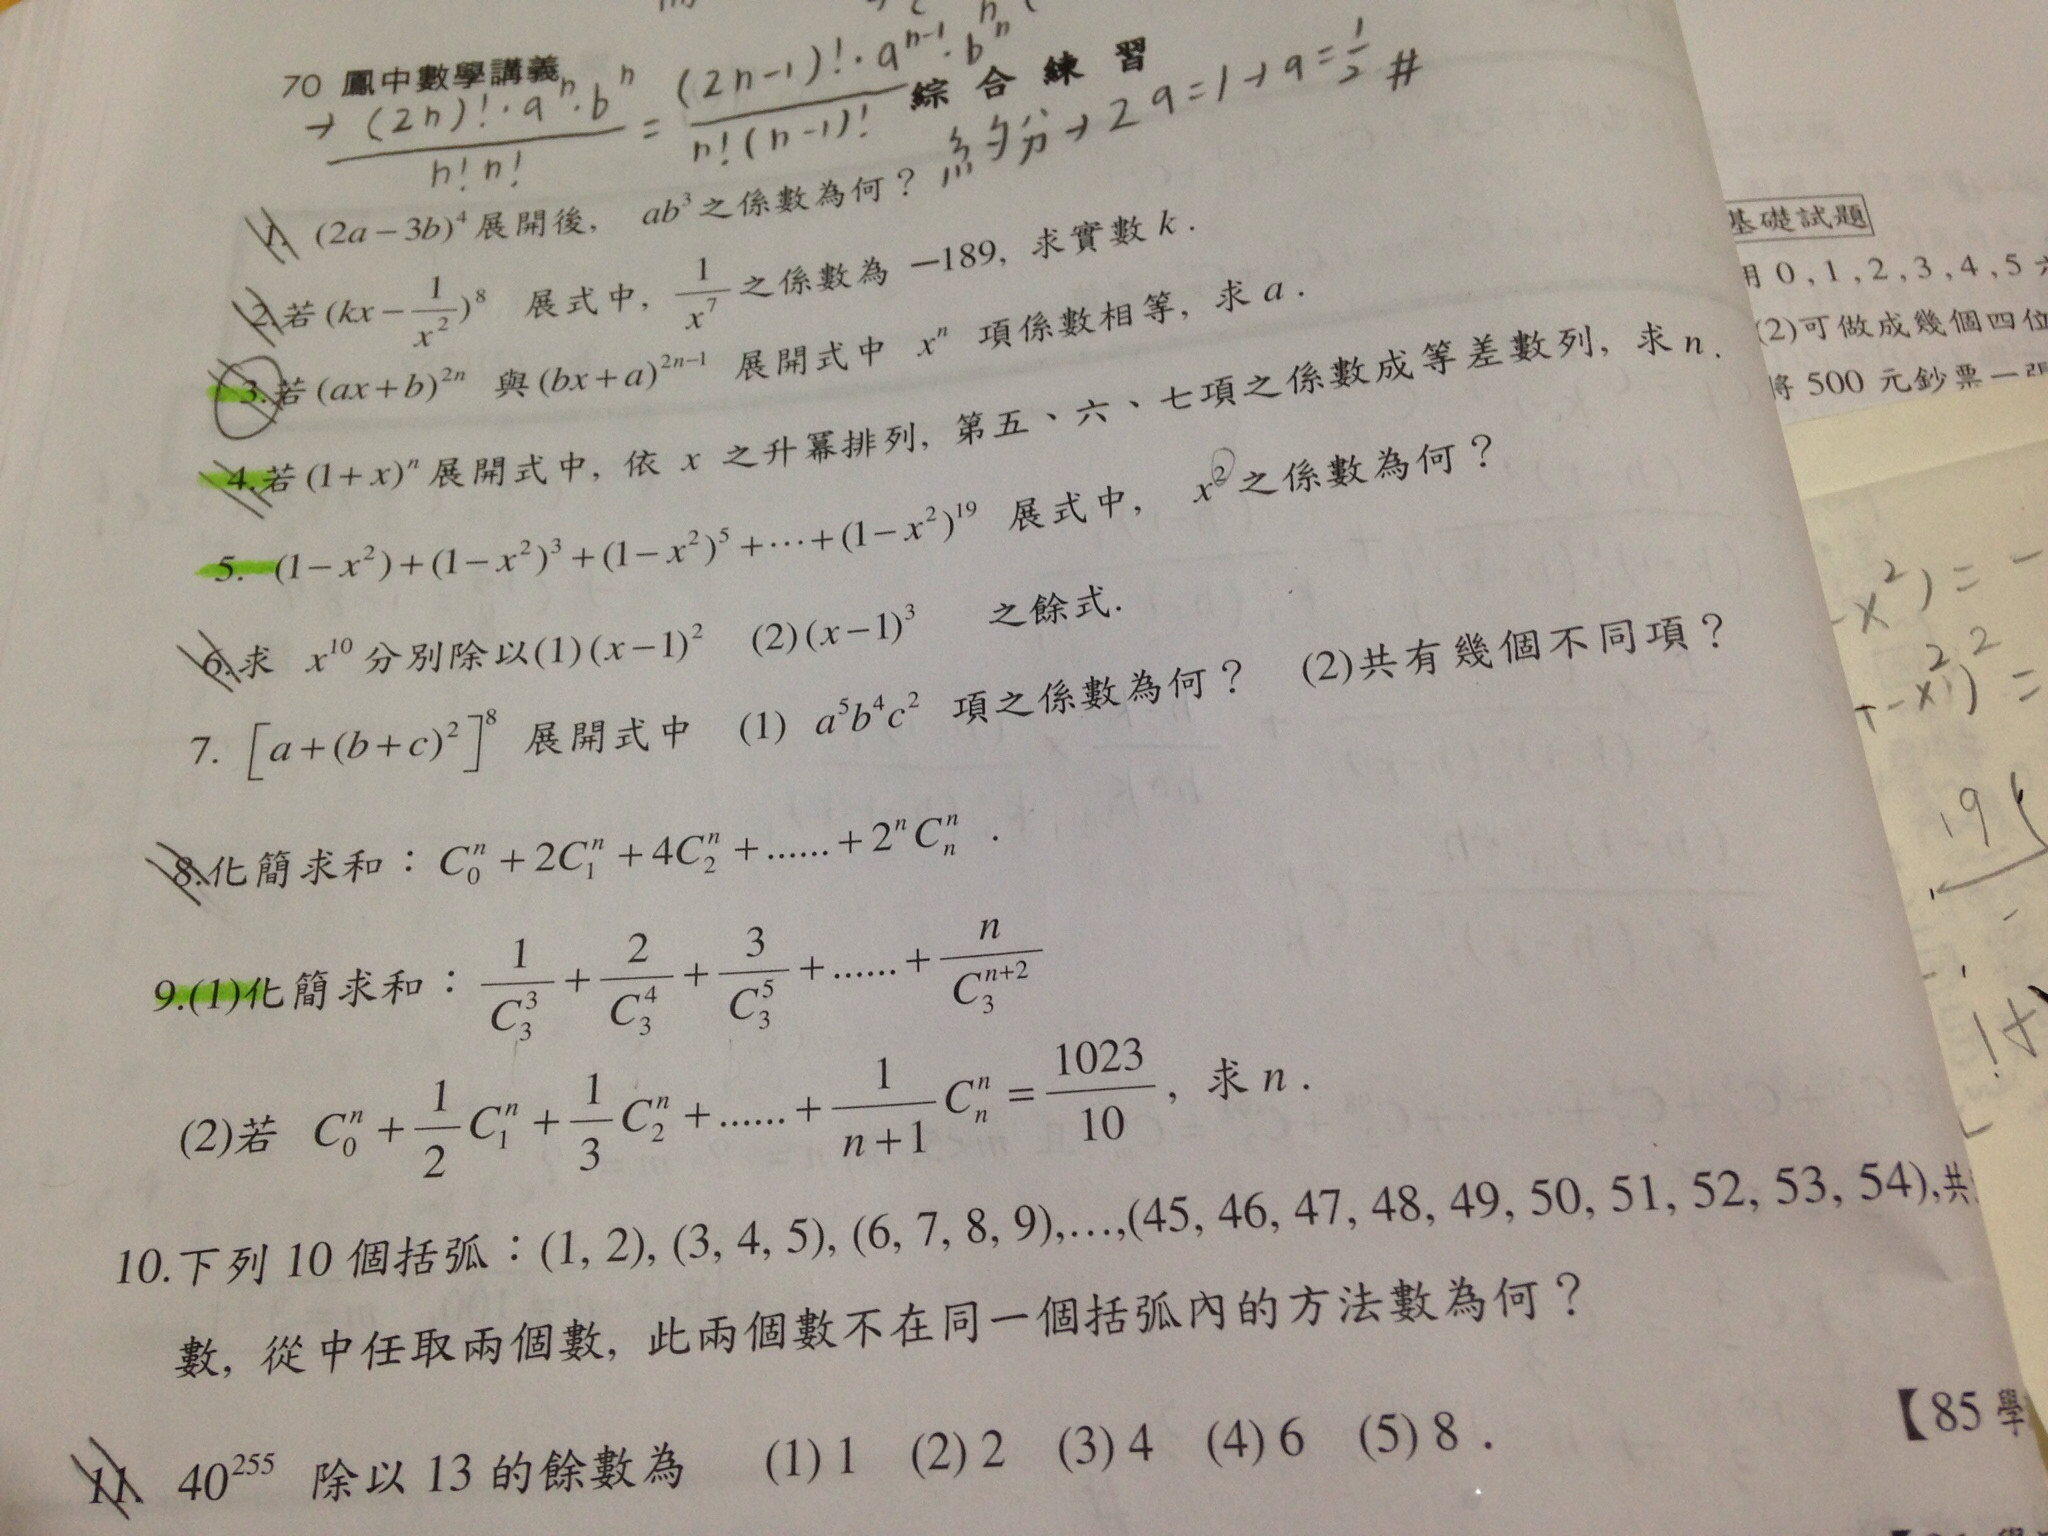 70 鳳中數學講義
→ (2n)!·aⁿ·bⁿ / n!n! = (2n-1)!·aⁿ⁻¹·bⁿ / n!(n-1)!
綜合練習
約分→2a=1→a=1/2 #
1. (2a-3b)⁴展開後, ab³之係數為何?
2.若(kx-1/x²)⁸ 展式中, 1/x⁷之係數為 -189, 求實數k.
3.若(ax+b)²ⁿ 與(bx+a)²ⁿ⁻¹ 展開式中 xⁿ 項係數相等, 求a.
4.若(1+x)ⁿ展開式中, 依 x 之升冪排列, 第五、六、七項之係數成等差數列, 求n.
5. (1-x²)+(1-x²)³+(1-x²)⁵+⋯+(1-x²)¹⁹ 展式中, x²之係數為何?
6.求 x¹⁰分別除以(1)(x-1)² (2)(x-1)³ 之餘式.
7. [a+(b+c)²]⁸ 展開式中 (1) a⁵b⁴c² 項之係數為何? (2)共有幾個不同項?
8.化簡求和:C₀ⁿ+2C₁ⁿ+4C₂ⁿ+......+2ⁿCₙⁿ .
9.(1)化簡求和:1/C₃³+2/C₃⁴+3/C₃⁵+......+n/C₃ⁿ⁺²
(2)若 C₀ⁿ+1/2C₁ⁿ+1/3C₂ⁿ+......+1/(n+1)Cₙⁿ=1023/10, 求n.
10.下列10個括弧:(1, 2), (3, 4, 5), (6, 7, 8, 9),…,(45, 46, 47, 48, 49, 50, 51, 52, 53, 54),共
數, 從中任取兩個數, 此兩個數不在同一個括弧內的方法數為何?
【85學
11. 40²⁵⁵ 除以13的餘數為 (1)1 (2)2 (3)4 (4)6 (5)8.
基礎試題
用0,1,2,3,4,5
(2)可做成幾個四位
將500元鈔票一
-x²)=-
-x²)²=